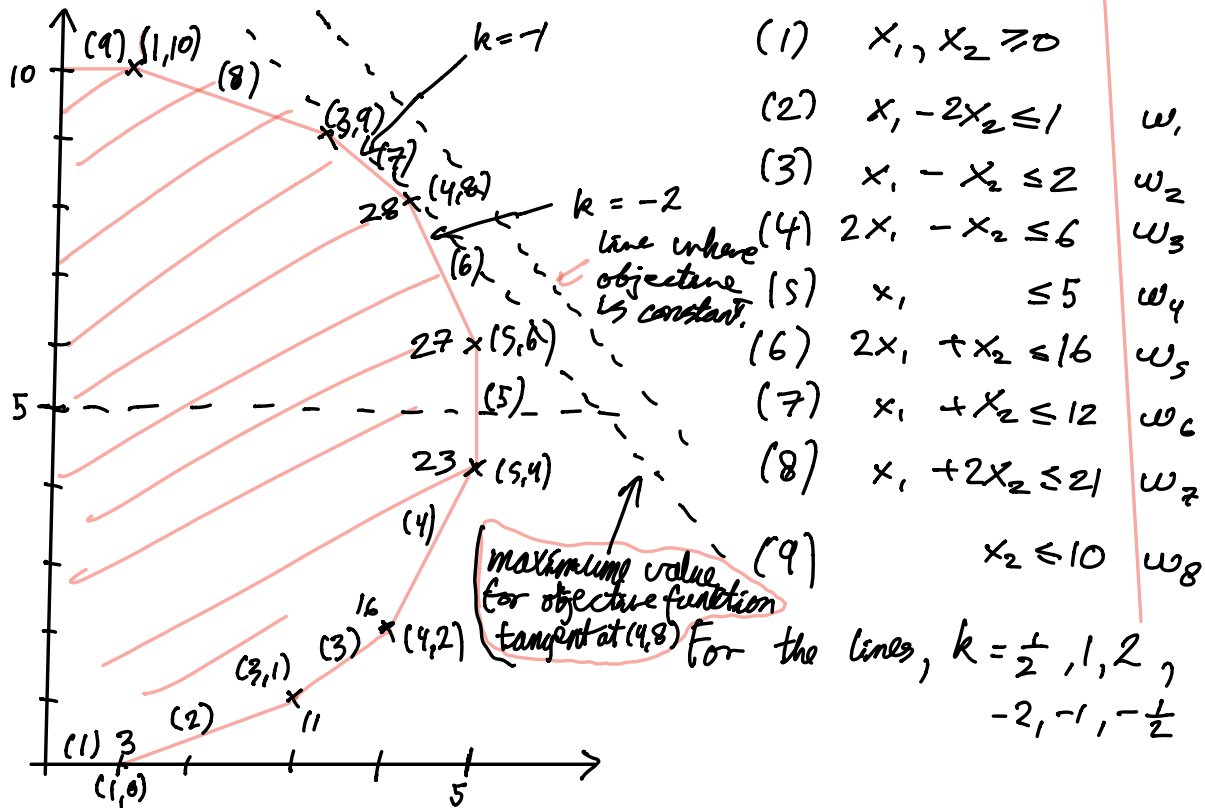 (9) (1,10)
k=-1
10
(8)
(3,9)
(7)
(4,8)
28
k = -2
line where
objective
is constant.
(6)
27 (5,6)
5
(5)
23 (5,4)
(4)
maximume value
for objective function
tangent at (4,8)
16
(3) (4,2)
(3,1)
11
(2)
(1) 3
(1,0)
5
(1) x₁, x₂ ≥0
(2) x₁ - 2x₂ ≤ 1 w₁
(3) x₁ - x₂ ≤ 2 w₂
(4) 2x₁ - x₂ ≤ 6 w₃
(5) x₁ ≤ 5 w₄
(6) 2x₁ + x₂ ≤ 16 w₅
(7) x₁ + x₂ ≤ 12 w₆
(8) x₁ + 2x₂ ≤ 21 w₇
(9) x₂ ≤ 10 w₈
For the lines, k = 1/2, 1, 2,
-2, -1, -1/2